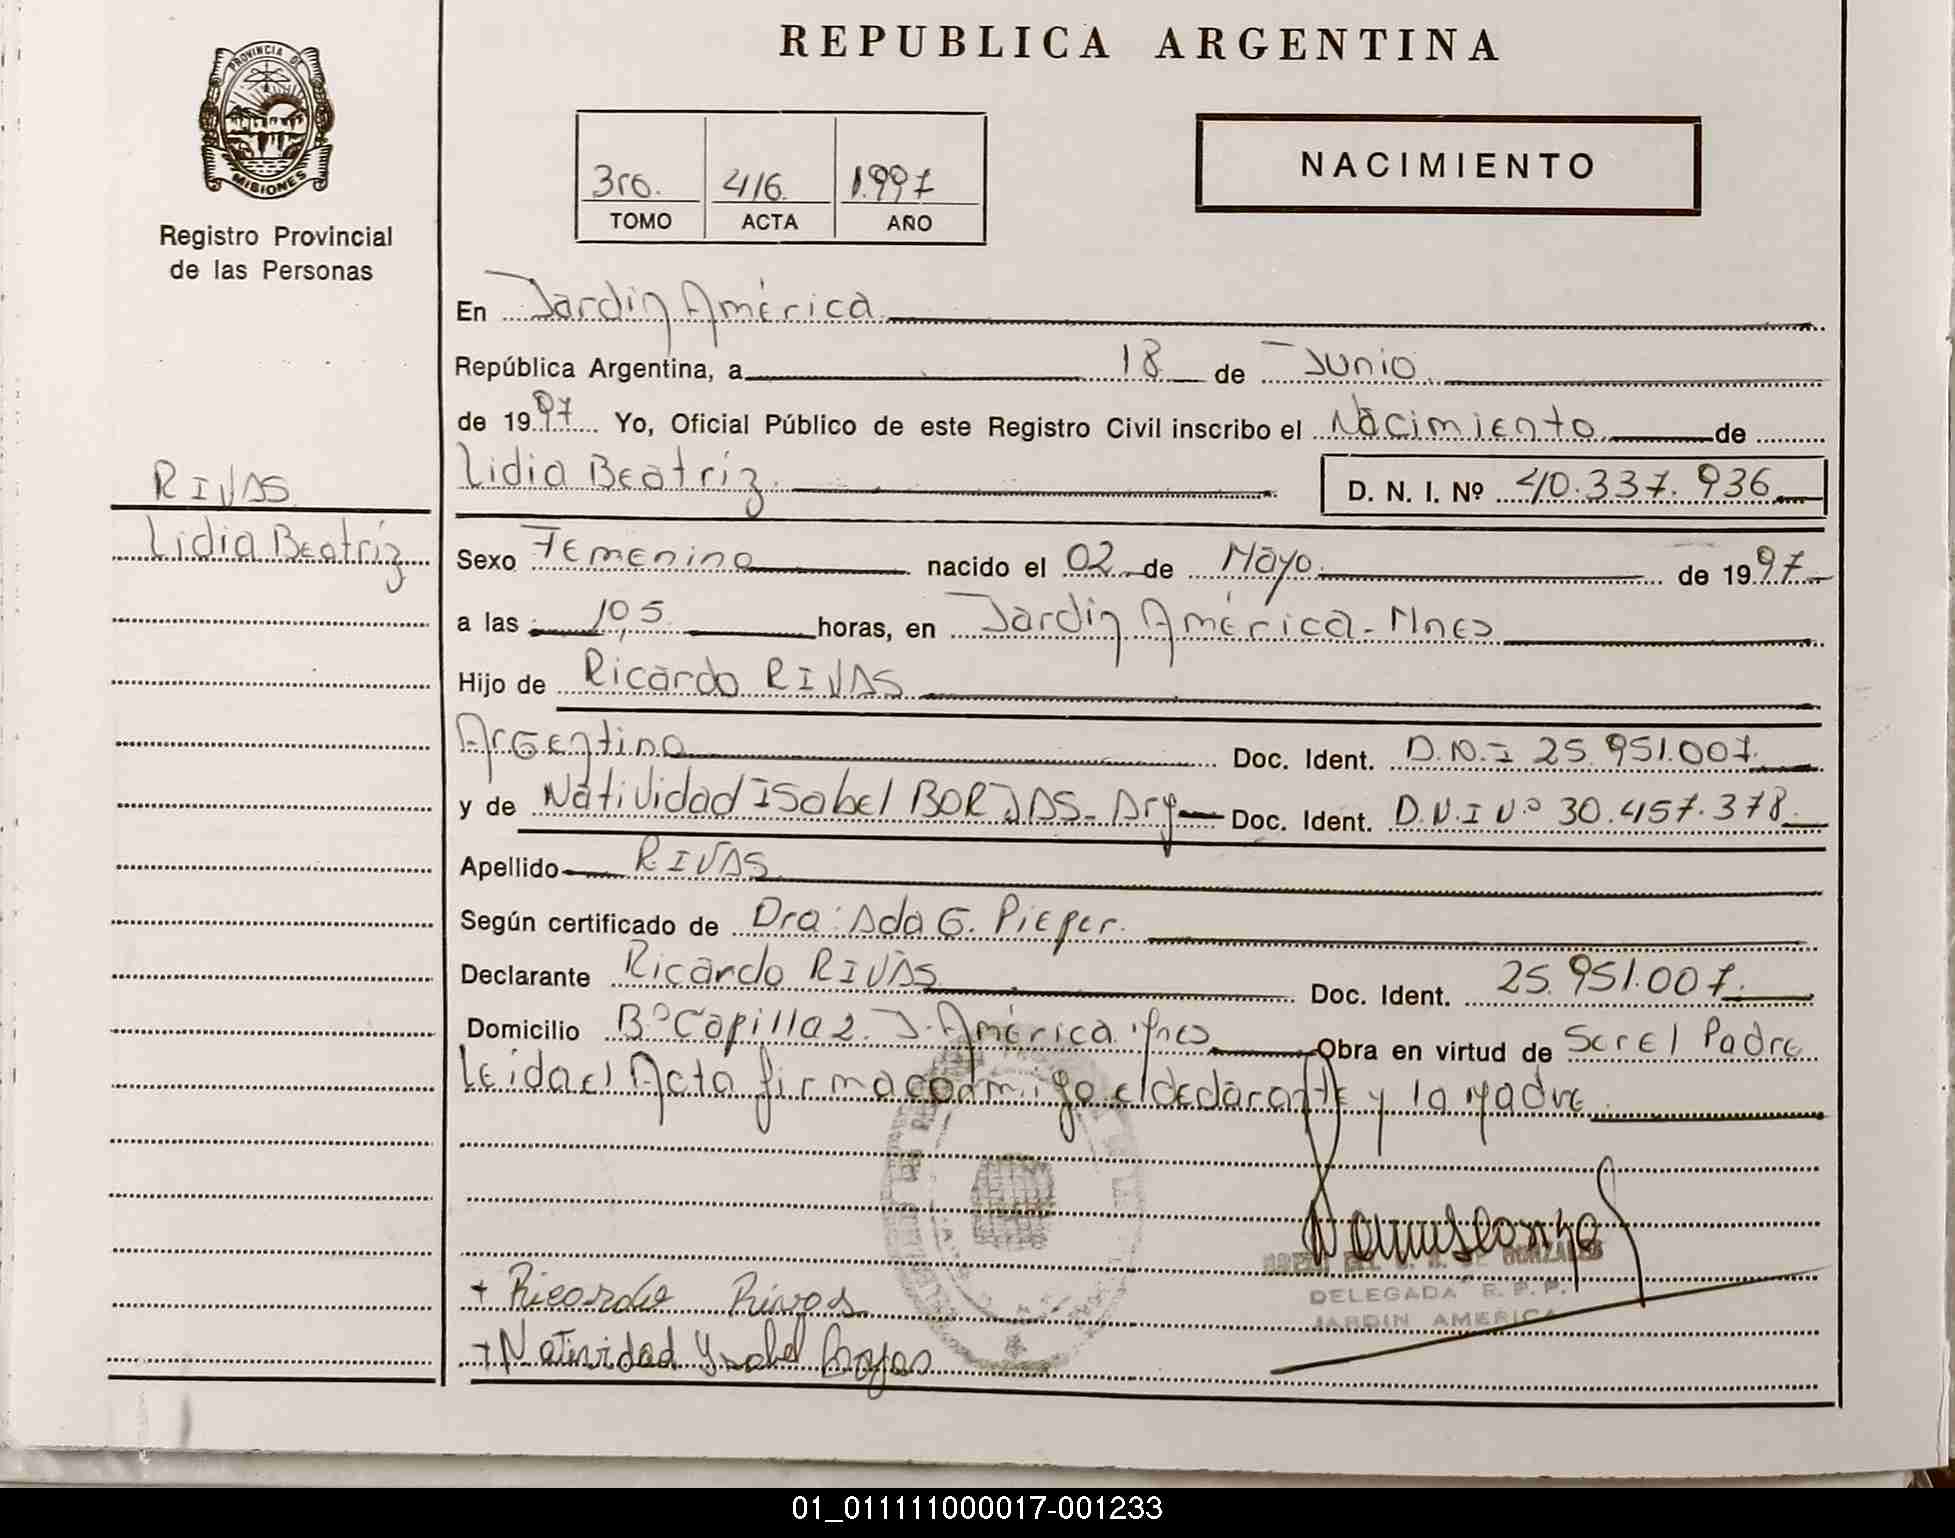 REPUBLICA ARGENTINA
PROVINCIA DE
MISIONES
Registro Provincial
de las Personas
3ro. 416. 1.997
TOMO ACTA AÑO
NACIMIENTO
En Jardin América
República Argentina, a 18 de Junio
de 1997 Yo, Oficial Público de este Registro Civil inscribo el Nacimiento de
Lidia Beatríz. D. N. I. Nº 40.337.936
RIVAS
Lidia Beatríz
Sexo Femenino nacido el 02 de Mayo de 1997
a las 1,05 horas, en Jardin América - Mnes
Hijo de Ricardo RIVAS
Argentino Doc. Ident. D.N.I 25.951.007.
y de Natividad Isabel BORJAS - Arg Doc. Ident. D.N.I Nº 30.457.378.
Apellido RIVAS
Según certificado de Dra: Ada G. Pieper.
Declarante Ricardo RIVAS Doc. Ident. 25.951.007.
Domicilio Bº Capilla 2. J. América Mnes Obra en virtud de Ser el Padre
Leida el Acta firma conmigo el declarante y la Madre
GONZALES
DELEGADA R. P. P.
JARDIN AMERICA
+ Ricardo Rivas
+ Natividad Ysabel Borjas
01_011111000017-001233